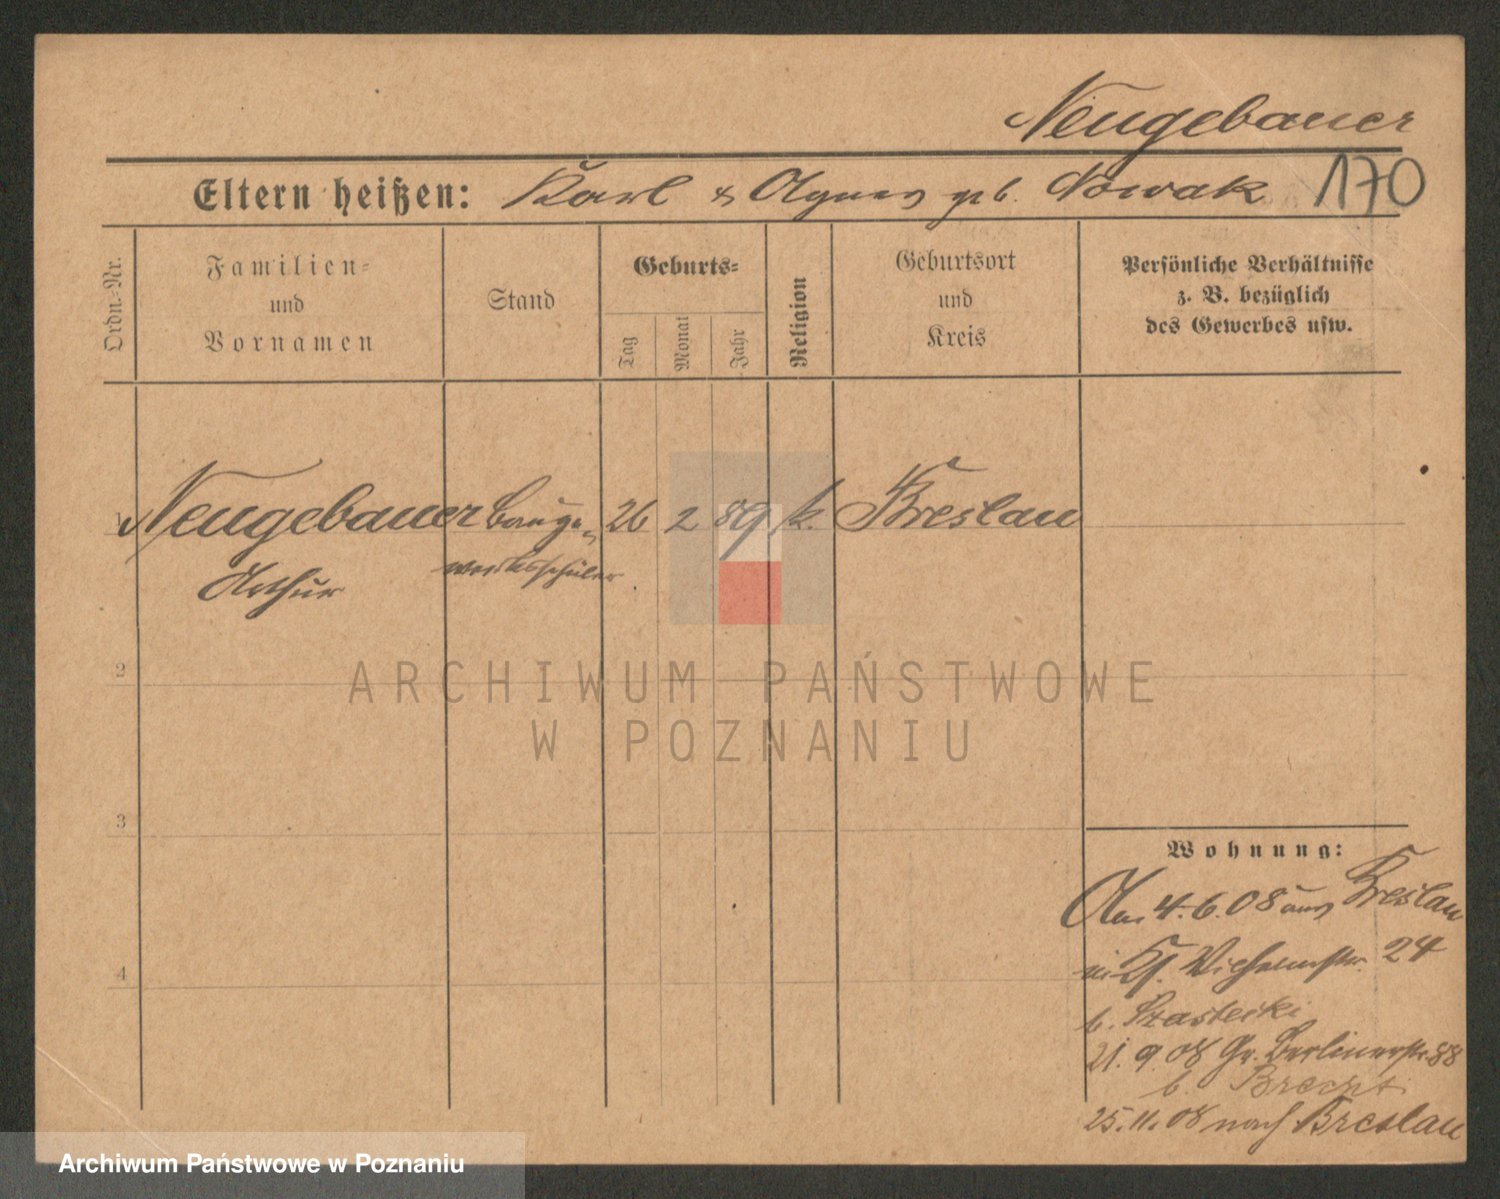 Neugebauer
Eltern heißen: Karl & Agnes geb. Nowak 170
Ordn.-Nr.
Familien-
und
Vornamen
Stand
Geburts-
Tag
Monat
Jahr
Religion
Geburtsort
und
Kreis
Persönliche Verhältnisse
z. B. bezüglich
des Gewerbes usw.
1 Neugebauer Bauge- 26 2 89 k. Breslau
Arthur werksschüler
2
3
4
Wohnung:
An 4.6.08 aus Breslau
in Wilhelmstr. 24
b.
21.9.08 Gr. Berlinerstr. 88
b. Brecht
25.11.08 nach Breslau
ARCHIWUM PAŃSTWOWE
W POZNANIU
Archiwum Państwowe w Poznaniu